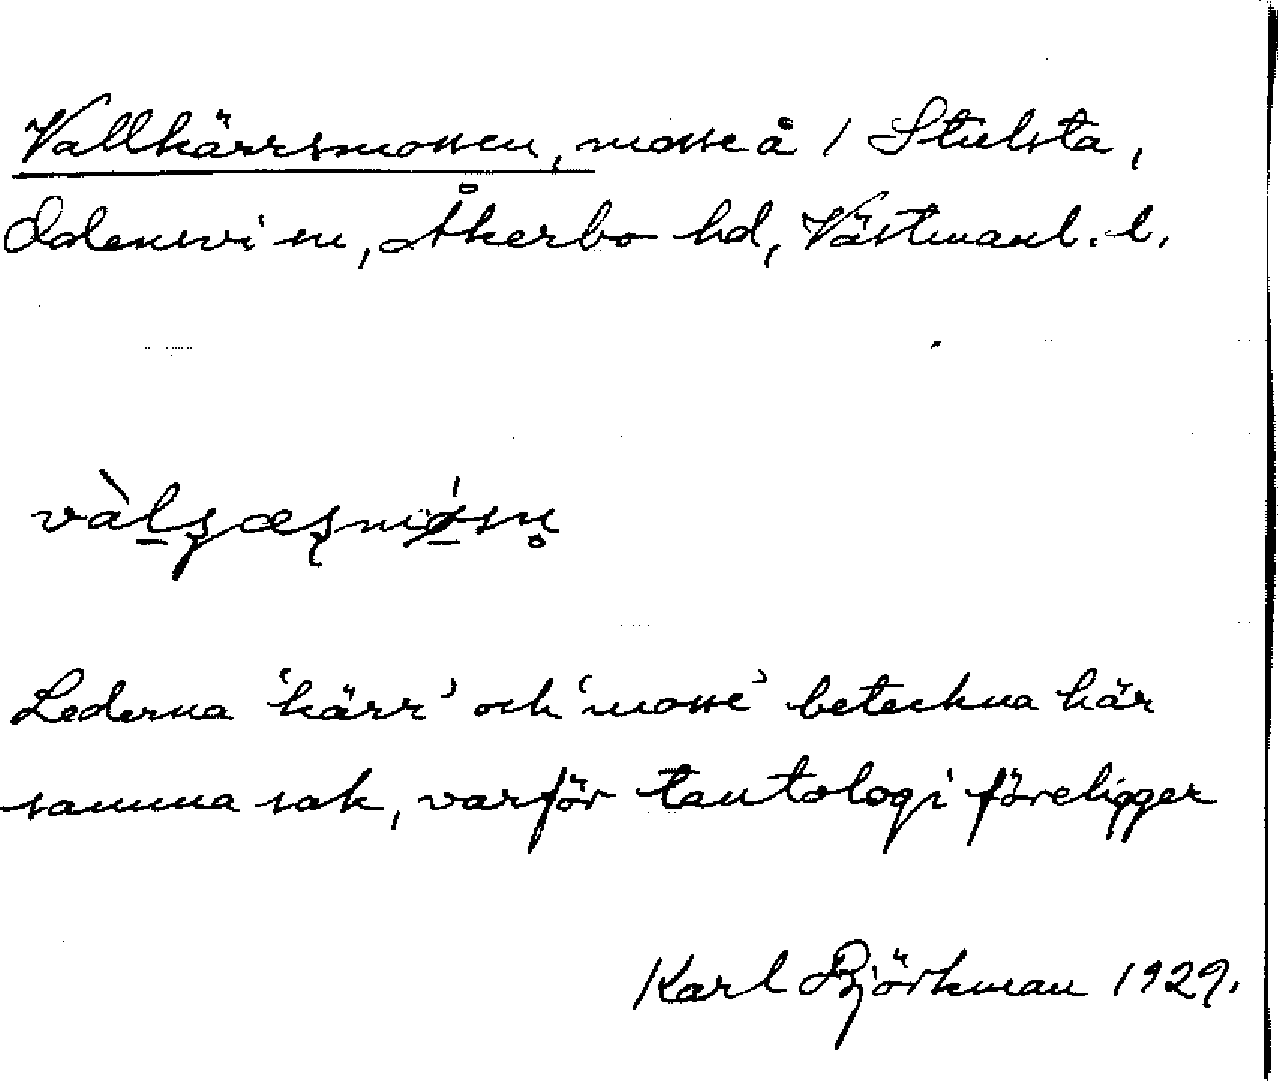 Vallkärrsmossen, mosse å / Stulsta,
Odensvi sn, Åkerbo hd, Västmanl. l.
Lederna 'kärr' och 'mosse' beteckna här
samma sak, varför tautologi föreligger
Karl Björkman 1929.